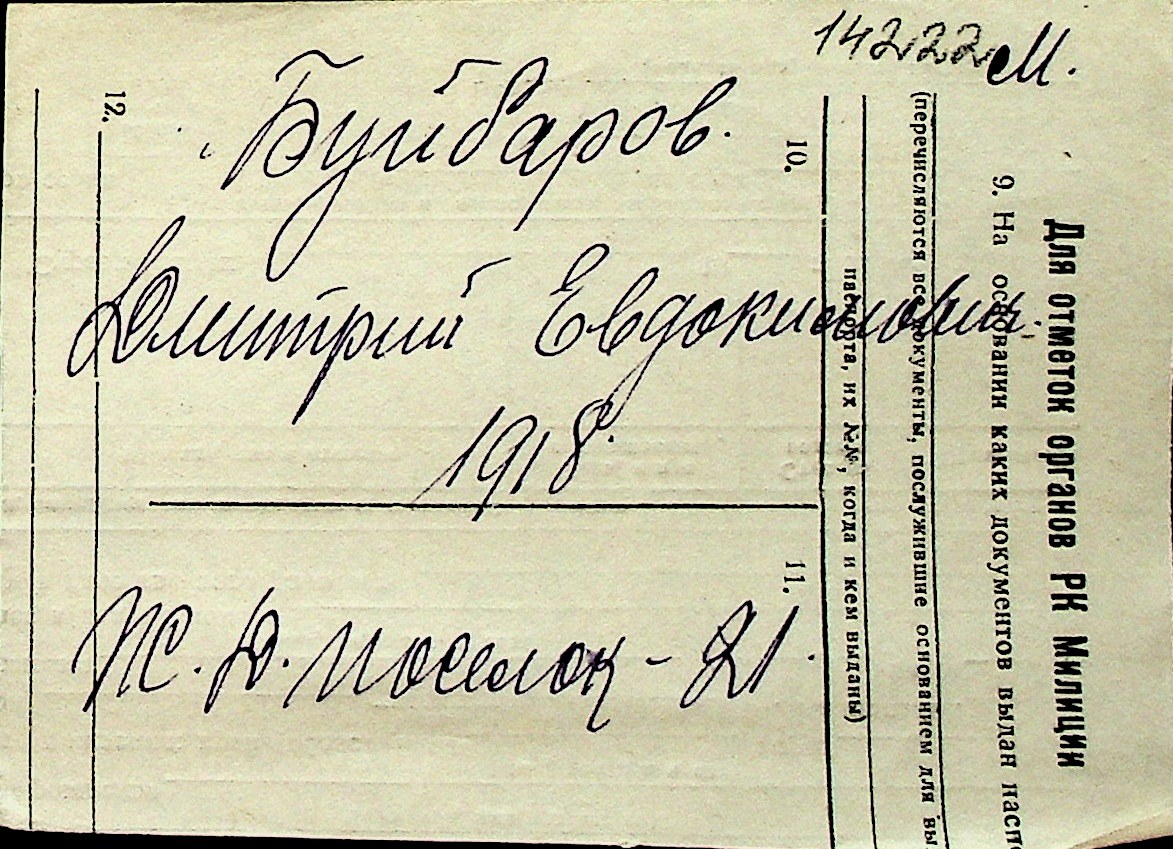 14222 М.
Буйбаров.
Дмитрий Евдокимович.
1918.
Ж. Д. поселок - 21.
Для отметок органов РК Милиции
9. На основании каких документов выдан паспо
(перечисляются все документы, послужившие основанием для вы
паспорта, их №№, когда и кем выданы)
10.
11.
12.